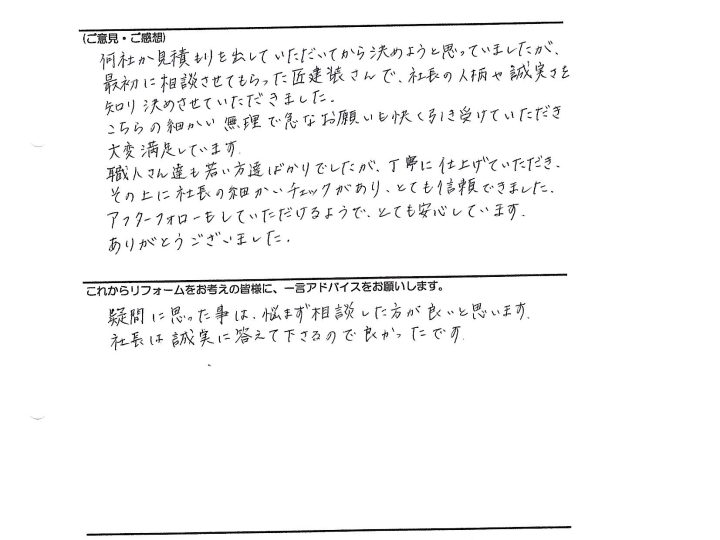 (ご意見・ご感想)
何社か見積もりを出していただいてから決めようと思っていましたが、
最初に相談させてもらった匠建装さんで、社長の人柄や誠実さを
知り決めさせていただきました。
こちらの細かい無理で急なお願いも快く引き受けていただき
大変満足しています。
職人さん達も若い方達ばかりでしたが、丁寧に仕上げていただき、
その上に社長の細かいチェックがあり、とても信頼できました。
アフターフォローもしていただけるようで、とても安心しています。
ありがとうございました。
これからリフォームをお考えの皆様に、一言アドバイスをお願いします。
疑問に思った事は、悩まず相談した方が良いと思います。
社長は誠実に答えて下さるので良かったです。